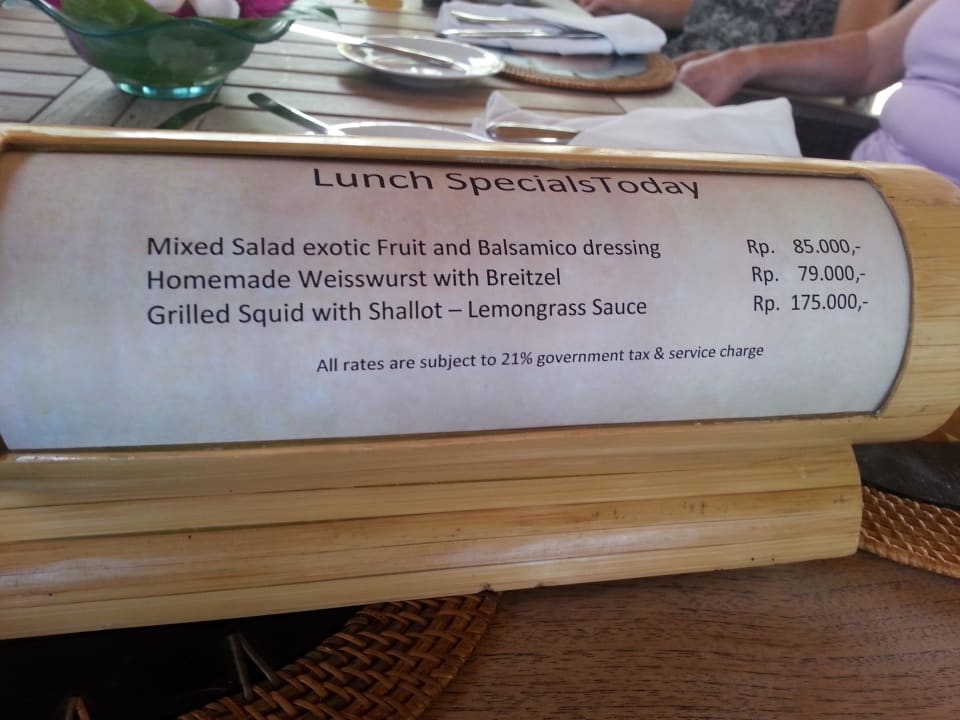 Lunch SpecialsToday
Mixed Salad exotic Fruit and Balsamico dressing Rp. 85.000,-
Homemade Weisswurst with Breitzel Rp. 79.000,-
Grilled Squid with Shallot – Lemongrass Sauce Rp. 175.000,-
All rates are subject to 21% government tax & service charge